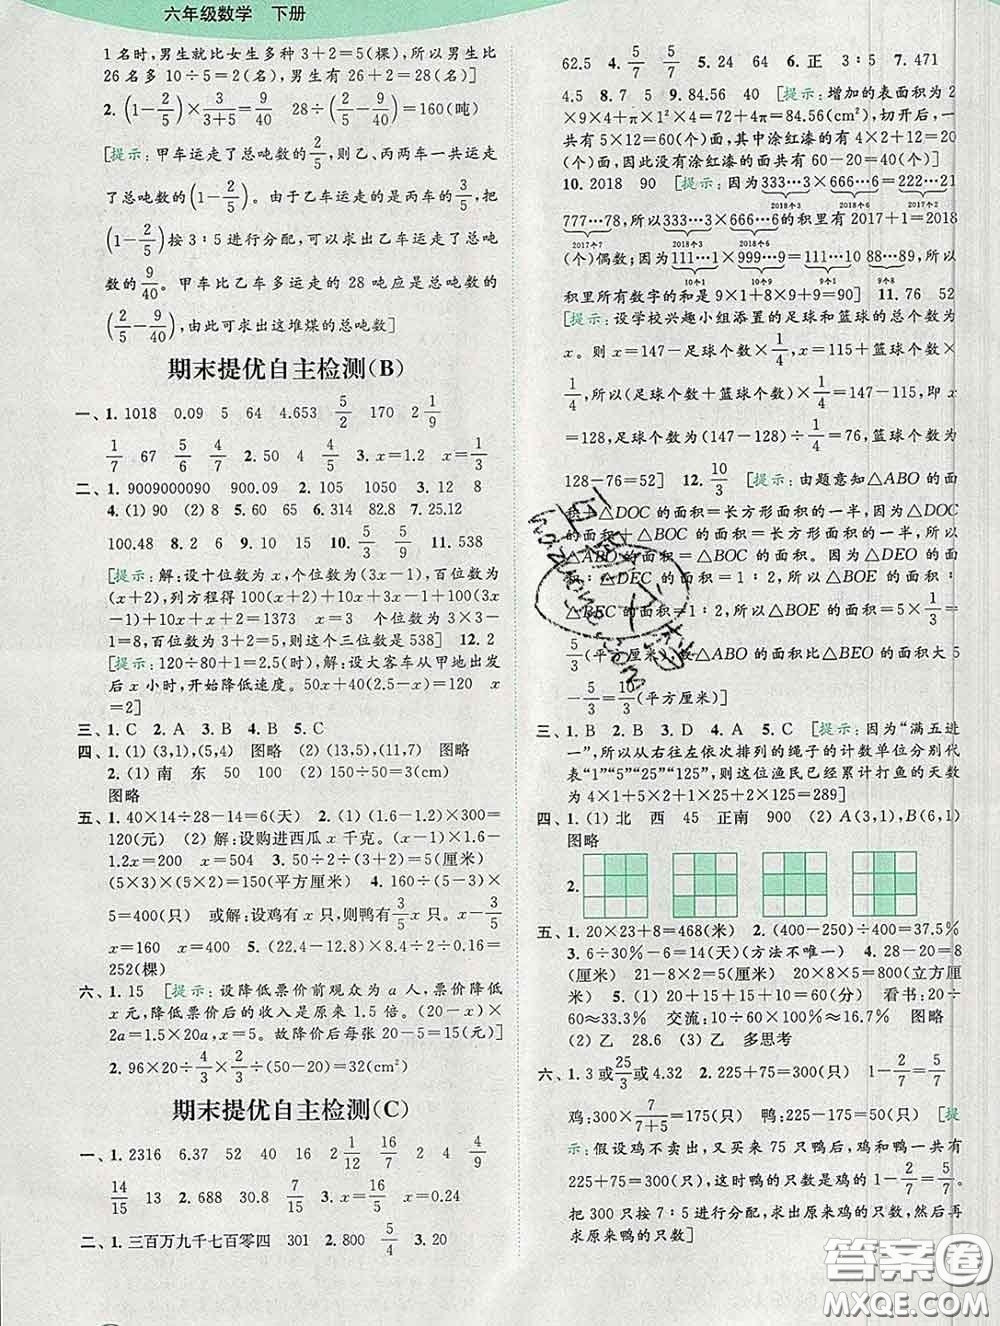 六年级数学 下册
1名时,男生就比女生多种3+2=5(棵),所以男生比
26名多10÷5=2(名),男生有26+2=28(名)]
2. (1-2/5)×3/(3+5)=9/40 28÷(2/5-9/40)=160(吨)
[提示:甲车运走了总吨数的2/5,则乙、丙两车一共运走
了总吨数的(1-2/5)。由于乙车运走的是丙车的3/5,把
(1-2/5)按3∶5进行分配,可以求出乙车运走总吨数
的9/40。甲车比乙车多运走的28吨应是总吨数的
(2/5-9/40),由此可求出这堆煤的总吨数]
期末提优自主检测(B)
一、1. 1018 0.09 5 64 4.653 5/2 170 2 1/9
1/7 67 5/6 5/6 2. 50 4 4/5 3. x=1.2 x=1/3
二、1. 9009000090 900.09 2. 105 1050 3. 12 8
4. (1) 90 (2) 8 5. 60 65 6. 314 7. 25.12
100.48 8. 2 6 9. 10 15 10. 5/3 5/9 11. 538
[提示:解:设十位数为x,个位数为(3x-1),百位数为
(x+2),列方程得100(x+2)+10x+3x-1+100(3x-
1)+10x+x+2=1373 x=3 个位数为3x-1=3×3-
1=8,百位数为3+2=5,则这个三位数是538] 12. 2
[提示:120÷80+1=2.5(时),解:设大客车从甲地出发
后x小时,开始降低速度。50x+40(2.5-x)=120 x
=2]
三、1. C 2. A 3. B 4. B 5. C
四、1. (1) (3,1),(5,4) 图略 (2) (13,5),(11,7) 图略
2. (1) 南 东 50 100 (2) 12÷4=3(cm)
图略
五、1. 40×14÷28-14=6(天) 2. (1) (1.6-1.2)×300=
120(元) (2) 解:设购进西瓜x千克。(x-1)×1.6-
1.2x=200 x=504 3. 50÷2÷(3+2)=5(厘米)
(5×3)×(5×2)=150(平方厘米) 4. 160÷(5-3)×
5=400(只) 或解:设鸡有x只,则鸭有3/5x只。x-3/5
x=160 x=400 5. (22.4-12.8)×8÷(1.4-1.0)+
12=252(棵)
六、1. 15 [提示:设降低票价前观众为a人,票价降低
x元,降低票价后的收入是原来1.5倍。(20-x)×
2a=1.5×20a,x=5。故降价后每张20-5=15(元)]
2. 96×20÷4/3×2/3÷(50-20)=32(cm²)
期末提优自主检测(C)
一、1. 2316 6.37 52 40 16 2 1/12 16/7 2 4 4/9
14/15 13 2. 688 30.8 7/15 3. x=16/5 x=0.24
二、1. 三百万九千七百零四 301 2. 800 5/4 3. 20
62.5 4. 5/7 5/7 5. 24 64 6. 正 3∶5 7. 471
4.5 8. 7 5 9. 84.56 40 [提示:增加的表面积为2
×9×4+π×1²×4=72+4π=84.56(cm²),切开后,一
共有5×12=60(个)面,其中涂红漆的有4×2+12=20
(个)面,因此没有涂红漆的面共有60-20=40(个)]
10. 2018 90 [提示:因为333…3×666…6=222…21
2018个3 2018个6
777…78,所以333…3×666…6的积里有2017+1=2018
2017个7 2018个3 2018个6
(个)偶数;因为111…1×999…9=111…10 88…89,所以
10个1 10个9 9个1 9个8
积里所有数字的和是9×1+8×9+9=90] 11. 76 52
[提示:设学校兴趣小组添置的足球和篮球的总个数为
x。则x=147-足球个数×1/4,x=115+篮球个数×
1/4,所以(足球个数+篮球个数)×1/4=147-115,即x
=128,足球个数为(147-128)÷1/4=76,篮球个数为
128-76=52] 12. 10/3 [提示:由题意知△ABO的面
积+△DOC的面积=长方形面积的一半,因为△DOC
的面积+△BOC的面积=长方形面积的一半,所以
△ABO的面积=△BOC的面积。因为△DEO的面
积∶△DEC的面积=1∶2,所以△BOE的面积∶
△BEC的面积=1∶2,所以△BOE的面积=5×1/3=
5/3(平方厘米),故△ABO的面积比△BEO的面积大5
-5/3=10/3(平方厘米)]
三、1. B 2. B 3. D 4. A 5. C [提示:因为“满五进
一”,所以从右往左依次排列的绳子的计数单位分别代
表“1”“5”“25”“125”,则这位渔民已经累计打鱼的天数为
4×1+5×2+1×25+2×125=289]
四、1. (1) 北 西 45 正南 900 (2) A(3,1),B(6,1)
图略
2.
五、1. 20×23+8=468(米) 2. (400-250)÷400=37.5%
3. 6÷30%-6=14(天)(方法不唯一) 4. 28-20=8
(厘米) 21-8×2=5(厘米) 20×8×5=800(立方厘
米) 5. (1) 20+15+15+10=60(分) 看书:20÷
60≈33.3% 交流:10÷60≈16.7% 图略
(2) 乙 28.6 (3) 乙 多思考
六、1. 3或25/3或4.32 2. 225+75=300(只) 1-2/7=5/7
鸡:300×7/(7+5)=175(只) 鸭:225-175=50(只) [提
示:假设鸡不卖出,又买来75只鸭后,鸡和鸭一共有
225+75=300(只),这时鸭的只数是鸡的1-2/7=5/7。
把300只按7∶5进行分配,求出原来鸡的只数,然后再
求原来鸭的只数]
答案圈
MXQE.COM